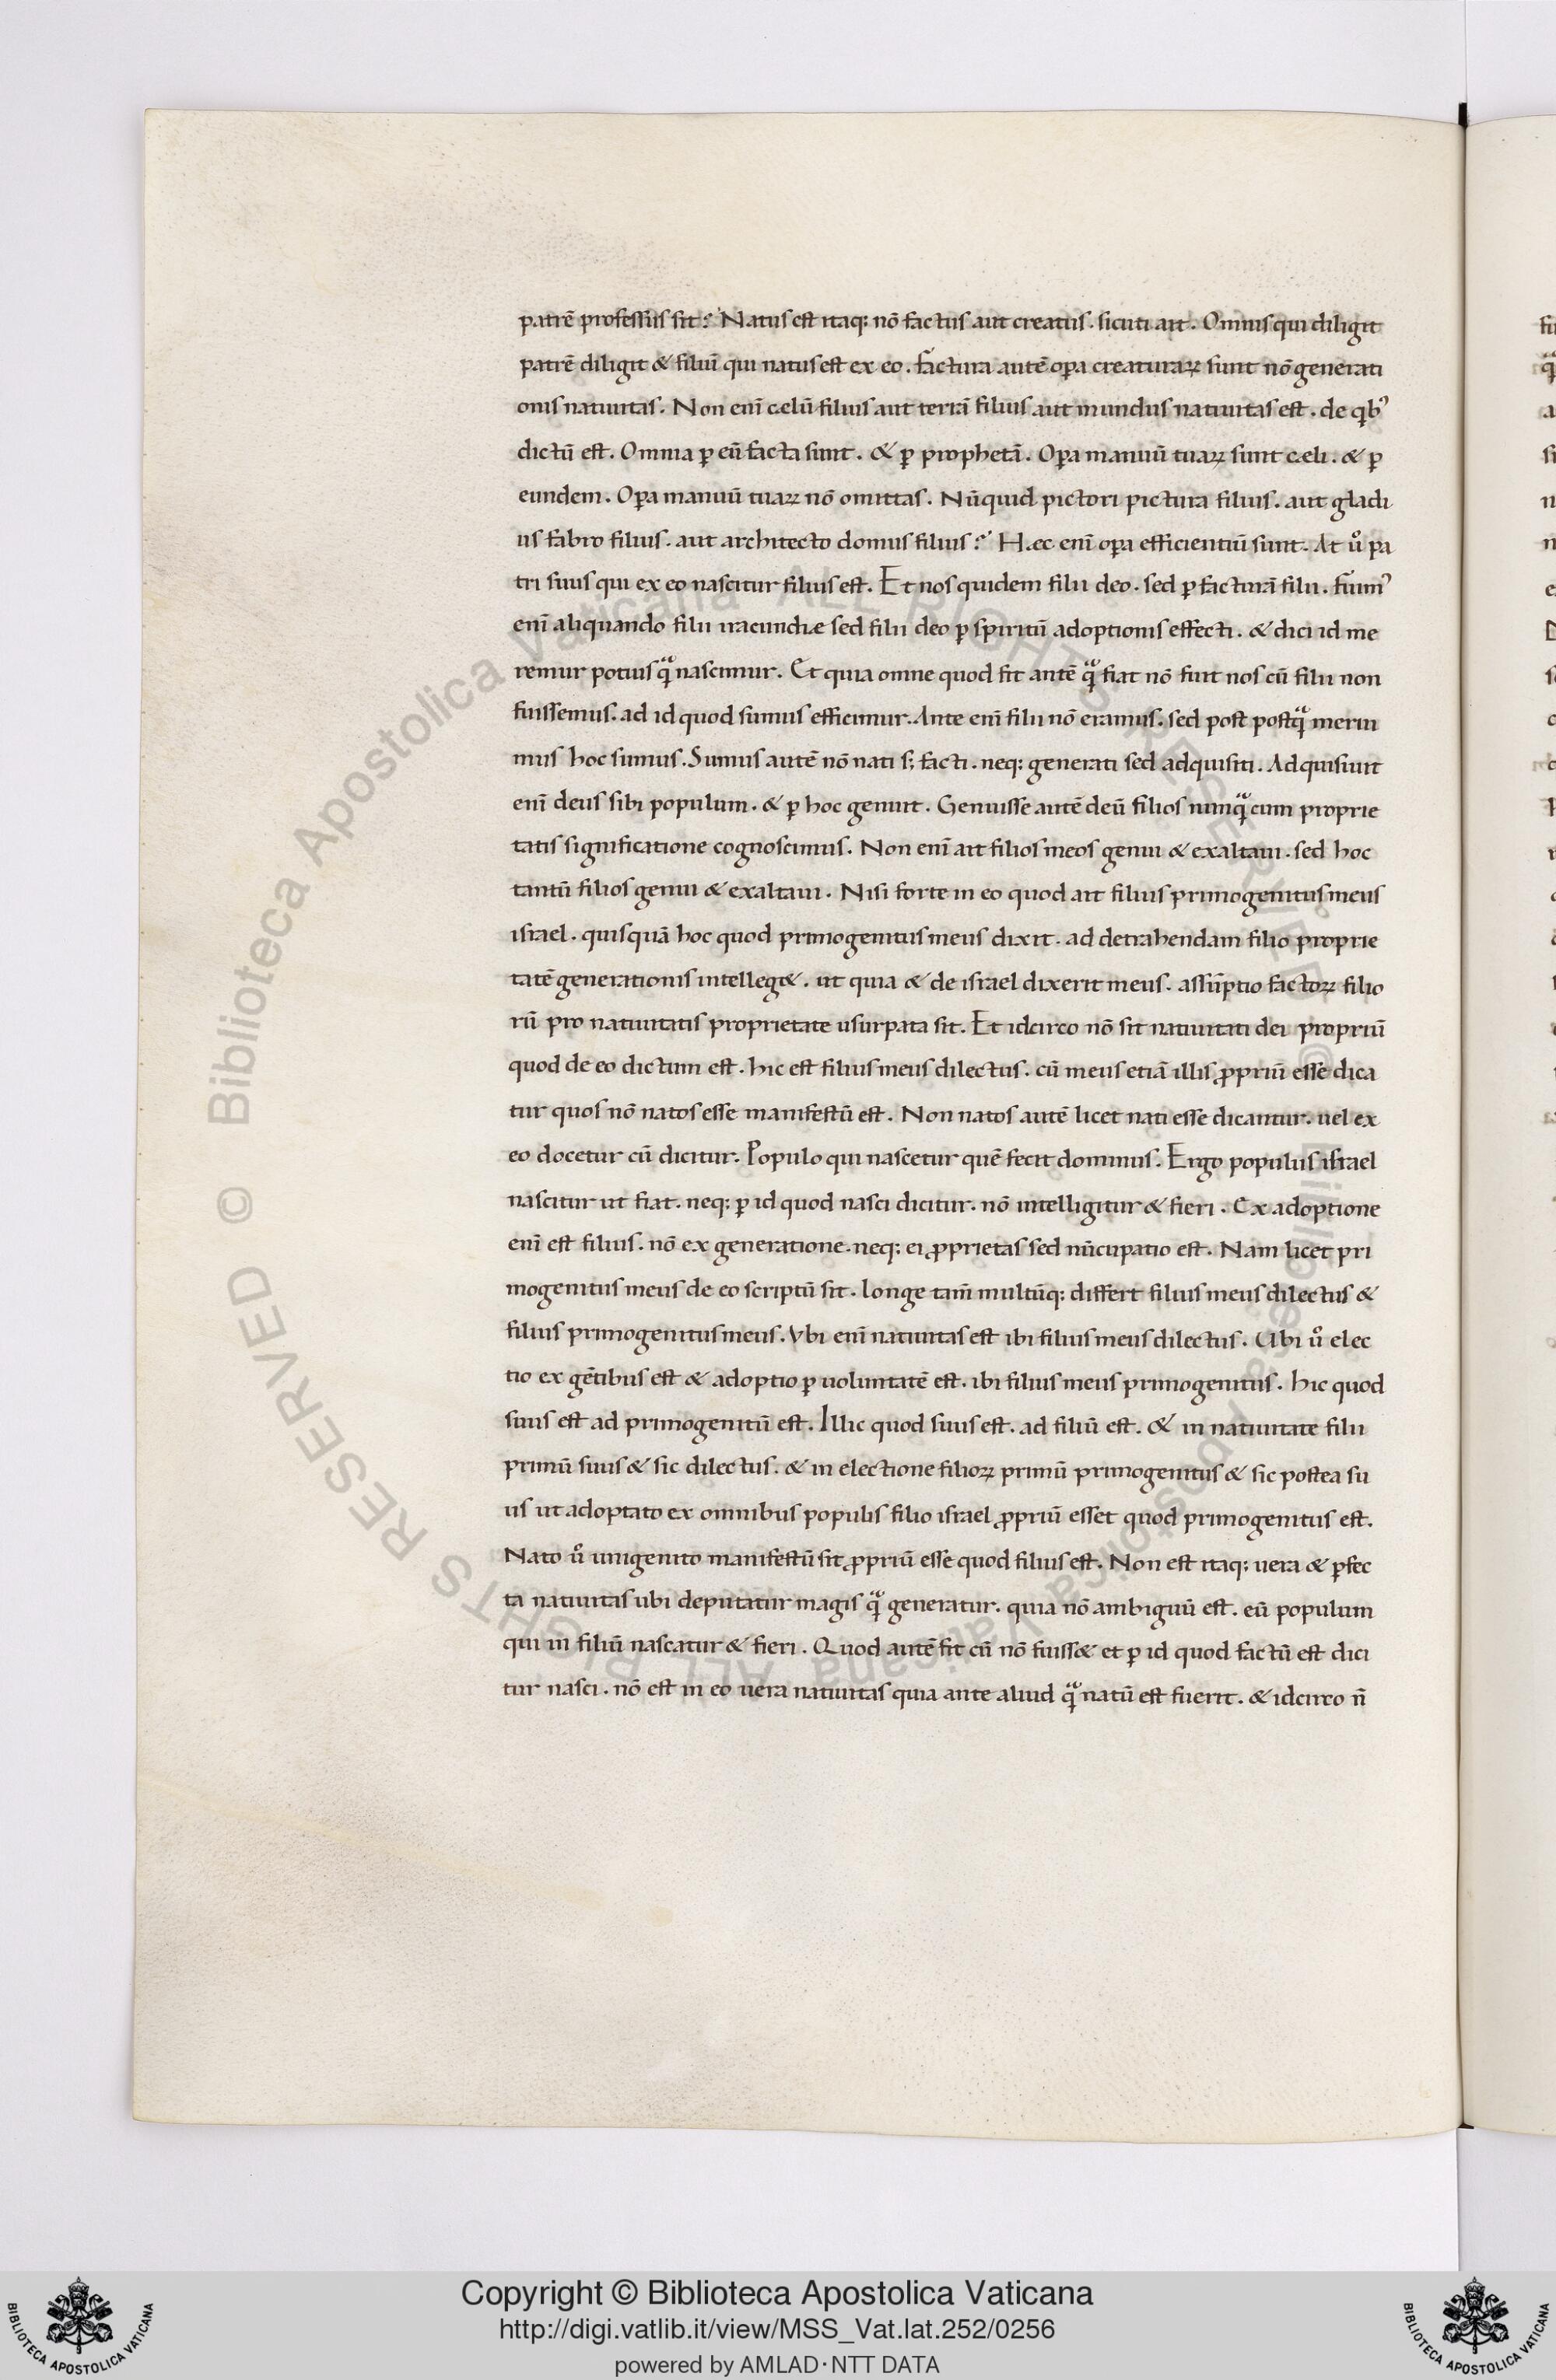 patrē professus sit? Natus est itaq; nō factus aut creatus. sicuti ait. Omnis qui diligit
patrē diligit & filiū qui natus est ex eo. factura autē opa creaturaꝝ sunt nō generati
onis natiuitas. Non enī cęlū filius aut terrā filius aut mundus natiuitas est. de qb'
dictū est. Omnia ꝑ eū facta sunt. & ꝑ prophetā. Opa manuū tuaꝝ sunt cęli. & ꝑ
eundem. Opa manuū tuaꝝ nō omittas. Nūquid pictori pictura filius. aut gladi
us fabro filius. aut architecto domus filius? Hęc enī opa efficientiū sunt. At uͦ pa
tri suus qui ex eo nascitur filius est. Et nos quidem filii deo. sed ꝑ facturā filii. fuim'
enī aliquando filii iracundię sed filii deo ꝑ spiritū adoptionis effecti. & dici id me
remur potius qᷓ nascimur. Et quia omne quod fit antē qᷓ fiat nō fuit nos cū filii non
fuissemus. ad id quod sumus efficimur. Ante enī filii nō eramus. sed post postqᷓ merui
mus hoc sumus. Sumus autē nō nati s; facti. neq; generati sed adquisiti. Adquisiuit
enī deus sibi populum. & ꝑ hoc genuit. Genuisse autē deū filios nunqᷓ cum proprie
tatis significatione cognoscimus. Non enī ait filios meos genui & exaltaui. sed hoc
tantū filios genui & exaltaui. Nisi forte in eo quod ait filius primogenitus meus
israel. quisquā hoc quod primogenitus meus dixit. ad detrahendam filio proprie
tatē generationis intelleg&. ut quia & de israel dixerit meus. assūptio factoꝝ filio
rū pro natiuitatis proprietate usurpata sit. Et idcirco nō sit natiuitati dei propriū
quod de eo dictum est. hic est filius meus dilectus. cū meus etiā illis ꝓpriū esse dica
tur quos nō natos esse manifestū est. Non natos autē licet nati esse dicantur. uel ex
eo docetur cū dicitur. Populo qui nascetur quē fecit dominus. Ergo populus israel
nascitur ut fiat. neq; ꝑ id quod nasci dicitur. nō intelligitur & fieri. Ex adoptione
enī est filius. nō ex generatione. neq; ei ꝓprietas sed nūcupatio est. Nam licet pri
mogenitus meus de eo scriptū sit. longe tam̄ multūq; differt filius meus dilectus &
filius primogenitus meus. Vbi enī natiuitas est ibi filius meus dilectus. Ubi uͦ elec
tio ex gētibus est & adoptio ꝑ uoluntatē est. ibi filius meus primogenitus. hic quod
suus est ad primogenitū est. Illic quod suus est. ad filiū est. & in natiuitate filii
primū suus & sic dilectus. & in electione filioꝝ primū primogenitus & sic postea su
us ut adoptato ex omnibus populis filio israel ꝓpriū esset quod primogenitus est.
Nato uͦ unigenito manifestū sit ꝓpriū esse quod filius est. Non est itaq; uera & ꝑfec
ta natiuitas ubi deputatur magis qᷓ generatur. quia nō ambiguū est. eū populum
qui in filiū nascatur & fieri. Quod autē fit cū nō fuiss& et ꝑ id quod factū est dici
tur nasci. nō est in eo uera natiuitas quia ante aliud qᷓ natū est fuerit. & idcirco n̄
Copyright © Biblioteca Apostolica Vaticana
http://digi.vatlib.it/view/MSS_Vat.lat.252/0256
powered by AMLAD·NTT DATA